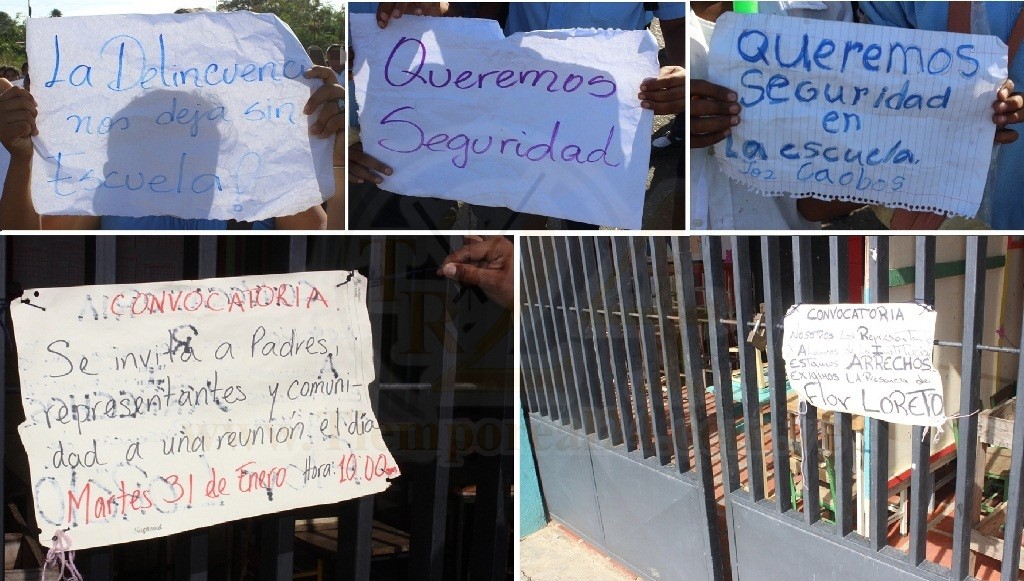 La Delincuenci
nos deja sin
Escuela?
Queremos
Seguridad
Queremos
Seguridad
en
La escuela.
Los Caobos
CONVOCATORIA
Se invita a Padres,
representantes y comuni-
dad a una reunión el día
Martes 31 de Enero Hora: 10:00
CONVOCATORIA
Nosotros Los Representantes
Estamos ARRECHOS
Exigimos LA Presencia de
Flor LORETO